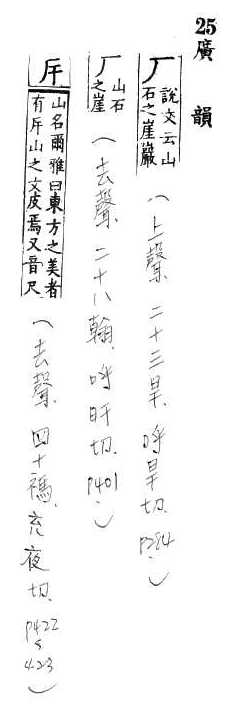 25 廣韻
厂 說文云山
石之崖巖
(上聲、二十三旱、呼旱切、P284、)
厂 山石
之崖
(去聲、二十八翰、呼旰切、P401、)
厈 山名爾雅曰東方之美者
有厈山之文皮焉又音尺
(去聲、四十禡、充夜切、P422
5
423)